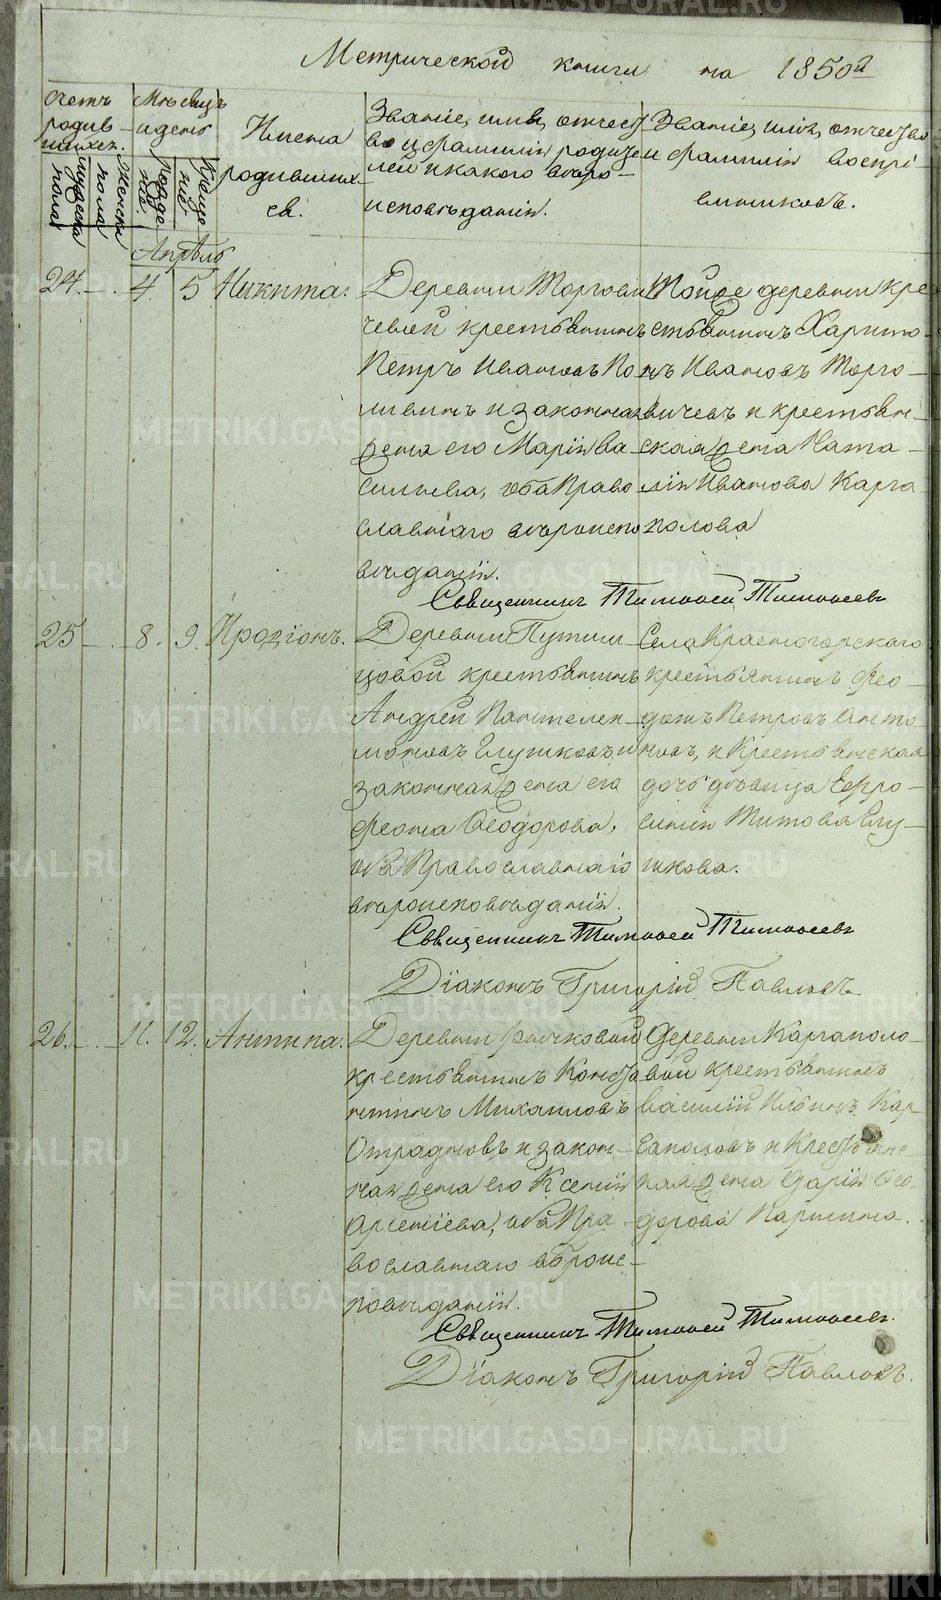 Метрической книги на 1850й
Счетъ родив-шихся.
Мѣсяцъ и день
Имена родившихся.
Званіе, имя, отчество и фамилия родителей и какого вѣроисповѣданія.
Званіе, имя, отчество и фамилия воспріемниковъ.
Мужеска пола
Женска пола
Рожденіе
Крещеніе
Апрѣль
24. 4. 5 Никита.
Деревни Торгови
чевой крестьянинъ
Петръ Ивановъ По
и законная
жена его Марія Ва-
сильева, оба Право
славнаго вѣроиспо
вѣданія.
Тойже деревни кре
стьянинъ Харито-
нъ Ивановъ Торго-
вичевъ и крестьян-
ская жена Ната-
лія Иванова Карга
полова
Священникъ Тимофей Тимофеевъ
25 8. 9. Иродіонъ.
Деревни Путил
цовой крестьянинъ
Андрей Пантелеи-
моновъ Глушковъ, и
законная жена его
Феодорова,
оба Православнаго
вѣроисповѣданія.
Села Красногорскаго
крестьянинъ Фео-
Петровъ Анто
новъ, и Крестьянская
дочь дѣвица Евфро-
синія Титова Глу-
шкова.
Священникъ Тимофей Тимофеевъ
Діаконъ Григорій Павловъ
26. 11. 12. Антипа.
Деревни Рычковой
крестьянинъ Конста
нтинъ Михаиловъ
Отрадновъ и закон-
ная жена его Ксенія
Арсеніева, оба Пра-
вославнаго вѣроис-
повѣданія.
Деревни Каргаполо-
вой крестьянинъ
Василій Ильинъ Кар
гаполовъ и Крестьянс-
кая жена Дарія Фео-
дорова Паршина.
Священникъ Тимофей Тимофеевъ.
Діаконъ Григорій Павловъ.
METRIKI.GASO-URAL.RU